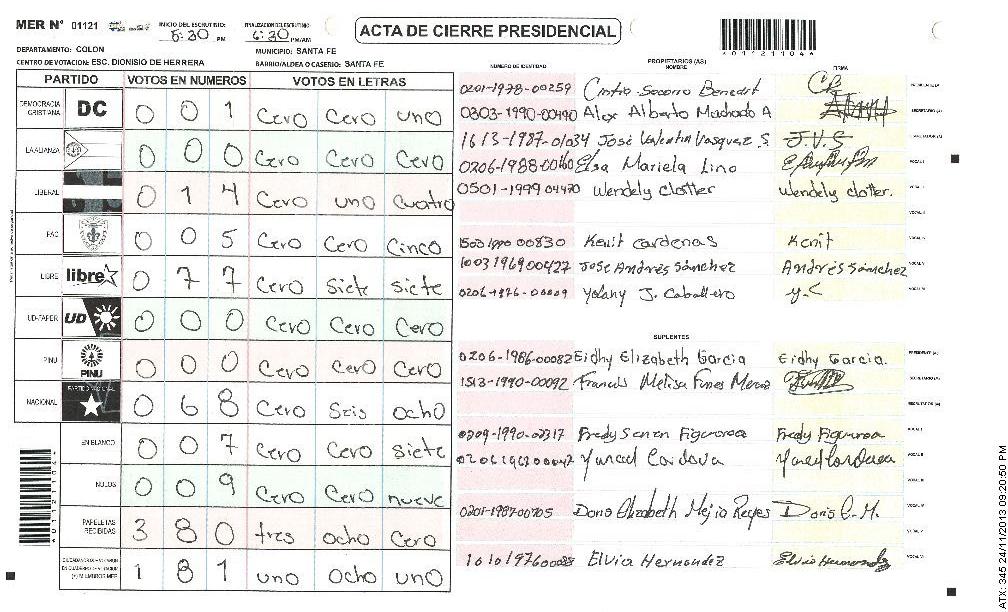 MER N° 01121
INICIO DEL ESCRUTINIO: 5:30 PM
FINALIZACION DEL ESCRUTINIO: 6:30 PM/AM
ACTA DE CIERRE PRESIDENCIAL
A01121104
DEPARTAMENTO: COLON
MUNICIPIO: SANTA FE
CENTRO DE VOTACION: ESC. DIONISIO DE HERRERA
BARRIO/ALDEA O CASERIO: SANTA FE
PARTIDO VOTOS EN NUMEROS VOTOS EN LETRAS
DEMOCRACIA CRISTIANA DC 0 0 1 Cero Cero uno
LA ALIANZA 0 0 0 Cero Cero Cero
LIBERAL 0 1 4 Cero uno cuatro
PAC 0 0 5 Cero Cero Cinco
LIBRE libre 0 7 7 Cero Siete siete
UD-FAPER UD 0 0 0 Cero Cero Cero
PINU PINU 0 0 0 Cero Cero Cero
NACIONAL PARTIDO NACIONAL 0 6 8 Cero Seis ocho
EN BLANCO 0 0 7 Cero Cero siete
NULOS 0 0 9 Cero Cero nueve
PAPELETAS RECIBIDAS 3 8 0 tres ocho Cero
1 8 1 uno ocho uno
A01121104
NUMERO DE IDENTIDAD
PROPIETARIOS (AS)
NOMBRE
FIRMA
0201-1978-00259
0303-1990-00490 Alex Alberto Machado A
1613-1987-01034 José Valentin Vasquez S. J.V.S
0206-1988-00160 Elsa Mariela Lino
0501-1999 04470 Wendely Clotter Wendely clotter.
1503 1990 00830 Kenit cardenas Kenit
1003 1969 00427 Jose Andrés Sánchez Andrés Sánchez
0206-1976-00009 Yolany J. Caballero
SUPLENTES
0206-1986-00082 Eidhy Elizabeth Garcia Eidhy Garcia.
1513-1990-00092
0209-1990-02317 Fredy Figueroa
0201-1987-00705 Doris Elizabeth Mejia Reyes
Elvia Hernandez Elvia Hernandez
ATX: 345 24/11/2013 09:20:50 PM